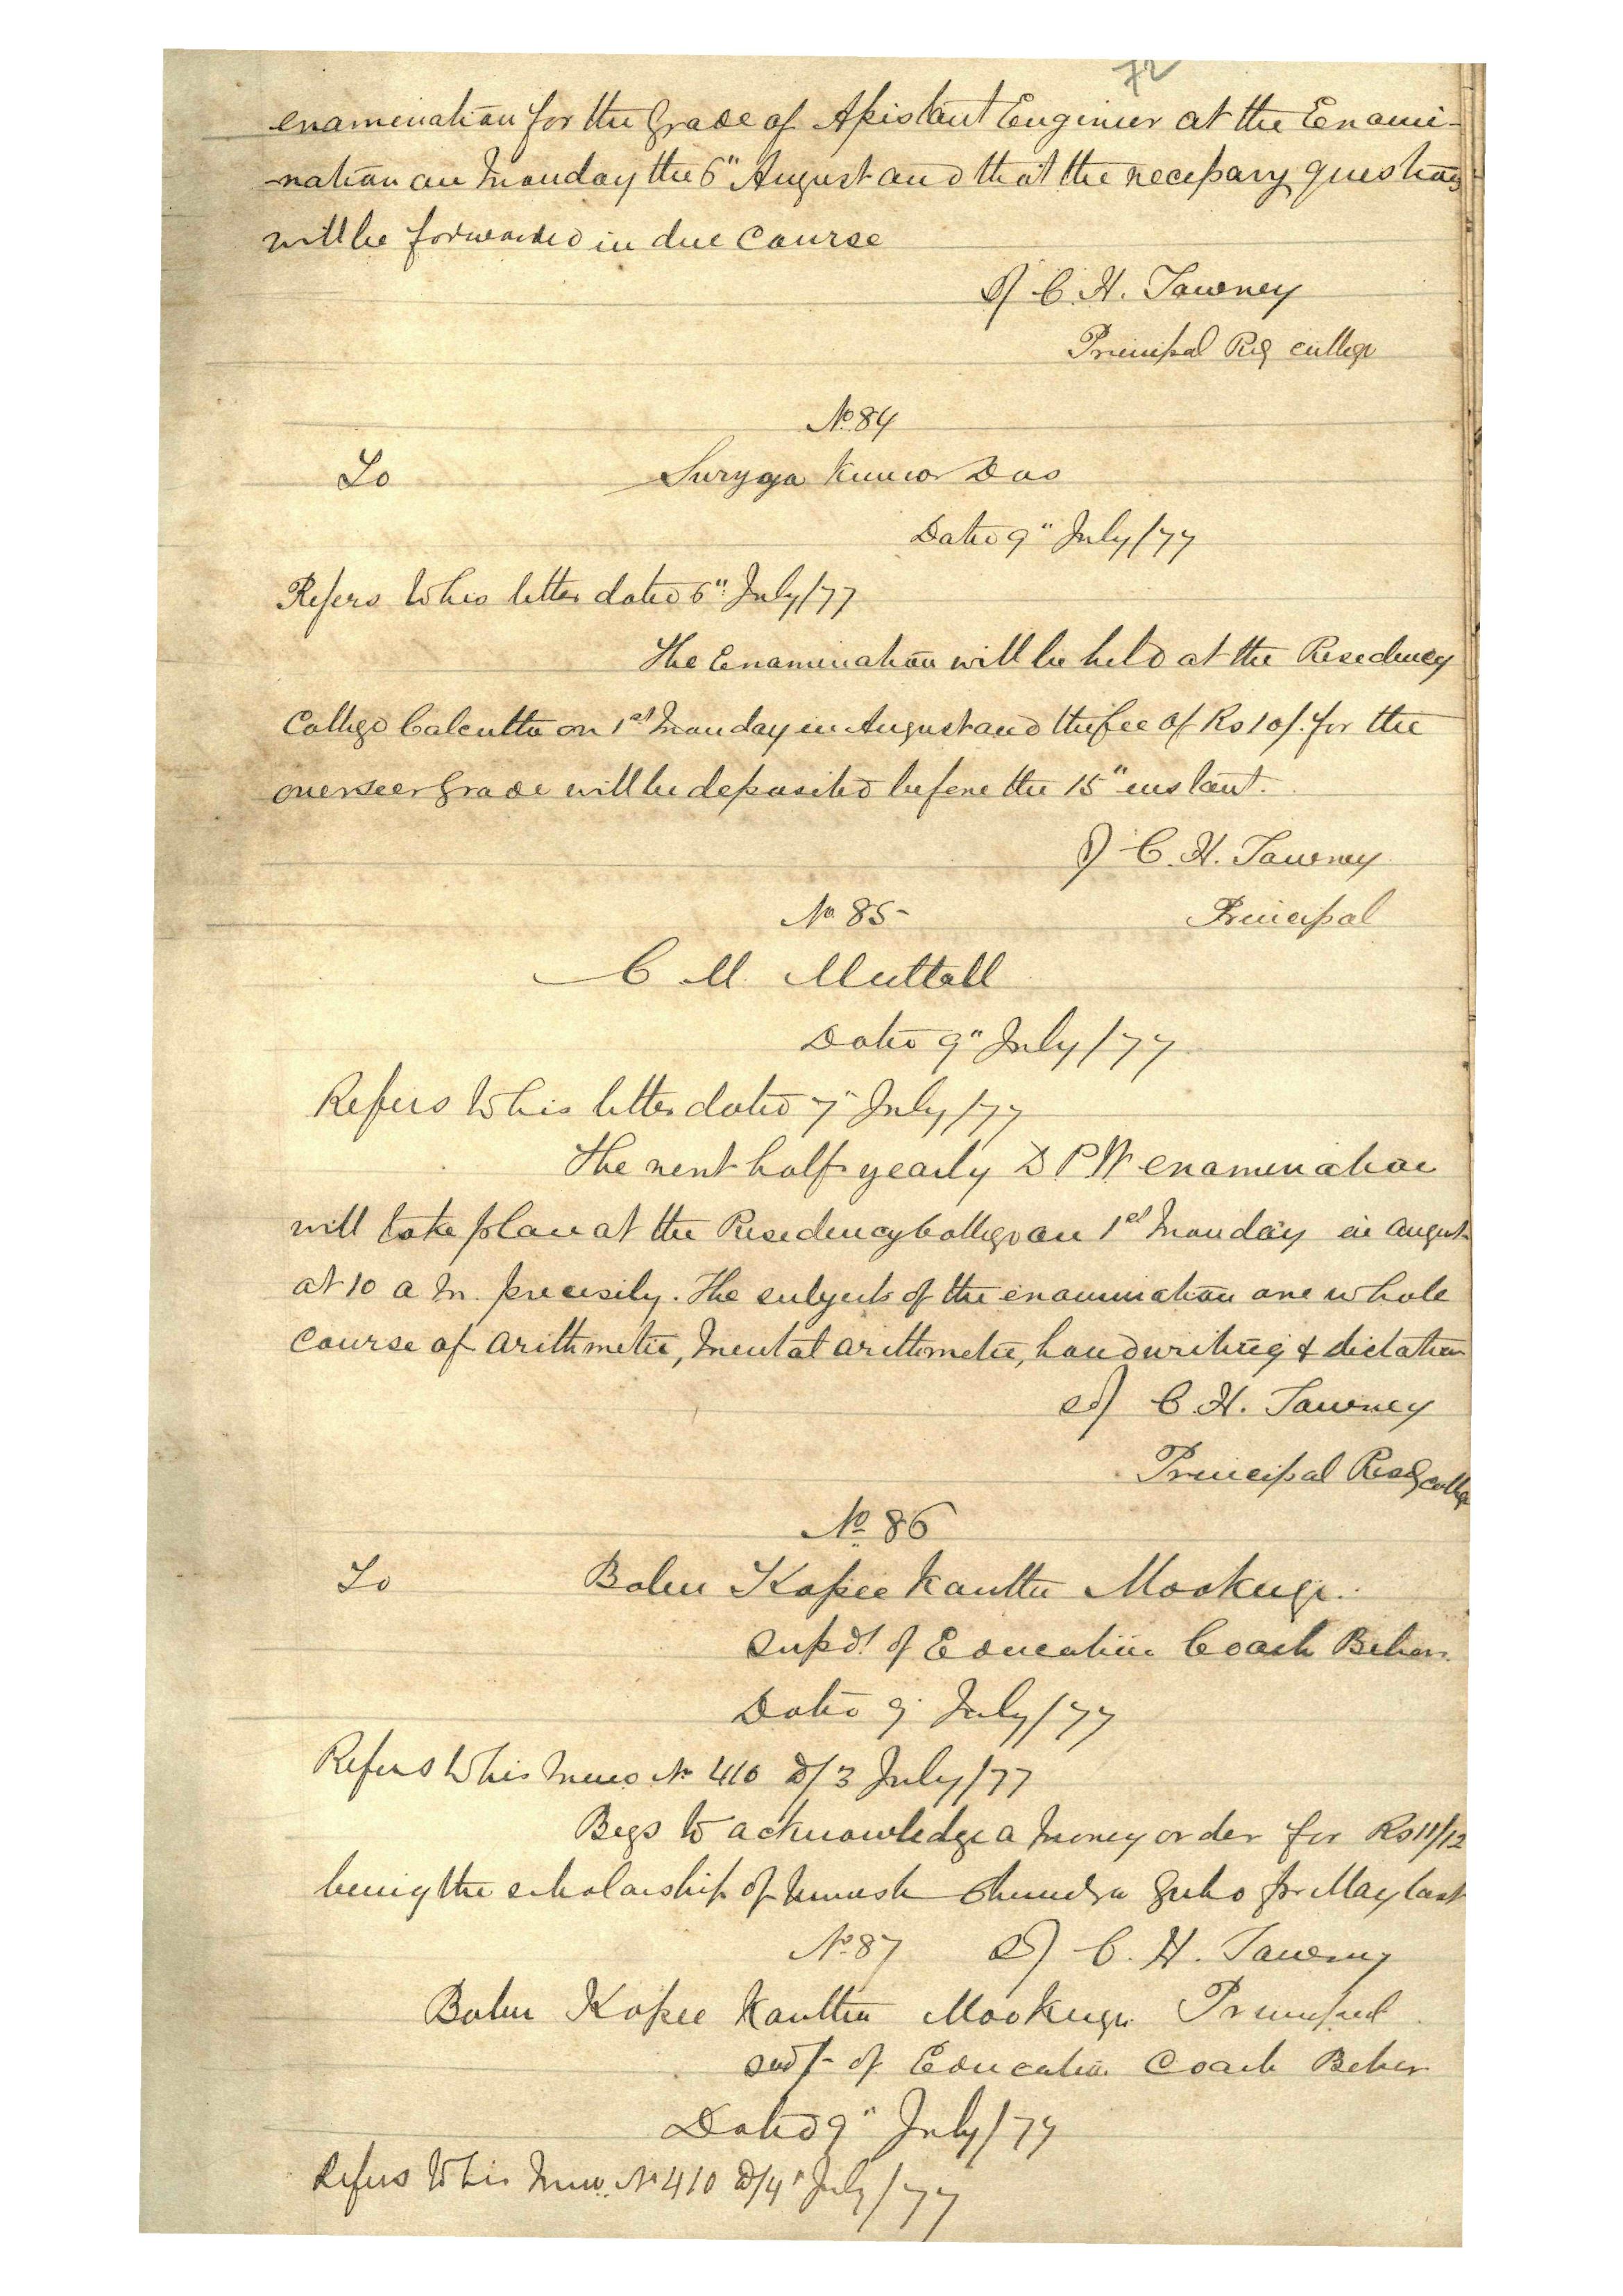 72
examination for the Grade of Assistant Engineer at the Exami-
-nation on Monday the 6" August and that the necessary questions
will be forwarded in due Course
Sd/ C. H. Tawney
Principal Presy College
No. 84
To Suryya Kumar Das
Dated 9" July/77
Refers to his letter dated 6" July/77
The Examination will be held at the Presidency
College Calcutta on 1st Monday in August and the fee of Rs 10/. for the
overseer Grade will be deposited before the 15" instant.
Sd/ C. H. Tawney
No. 85 Principal
C M. Muttall
Dated 9" July/77
Refers to his letter dated 7" July/77
The next half yearly D P.W examination
will take place at the Presidency College on 1st Monday in August
at 10 a m. precisely. The subjects of the examination are whole
Course of arithmetic, Mental arithmetic, handwriting & dictation
sd/ C. H. Tawney
Principal Presy College
No. 86
To Babu Kasee Kantha Mookerje.
Supdt. of Education Cooch Behar.
Dated 9" July/77
Refers to his Memo No 410 d/3 July/77
Begs to acknowledge a Money order for Rs 11/12
being the scholarship of Umesh Chundra Guho for May last
No. 87 Sd/ C. H. Tawney
Babu Kasee Kantha Mookerje Principal
sudt- of Education Cooch Behar
Dated 9" July/77
Refers to his Memo. No 410 d/4" July/77